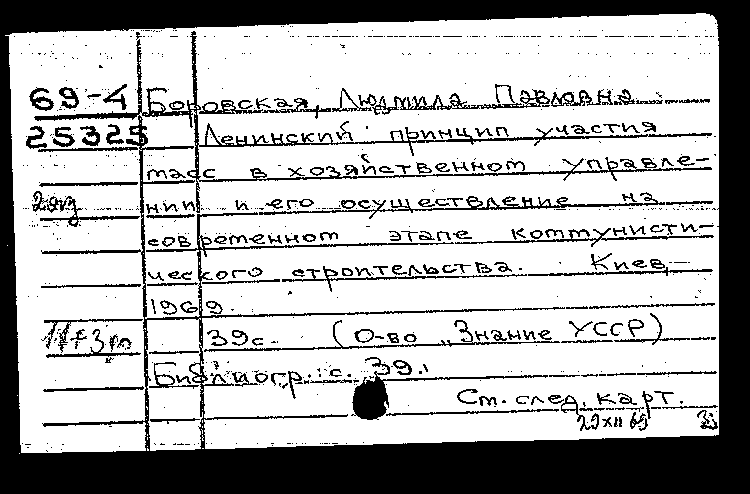 69-4 Боровская, Людмила Павловна.
25325 Ленинский принцип участия
масс в хозяйственном управле-
2 экз нии и его осуществление на
современном этапе коммунисти-
ческого строительства. Киев,
1969.
39 с. (О-во "Знание УССР)
Библиогр.: с. 39.
См. след. карт.
29 XII 69